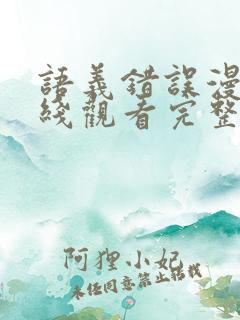 語義錯誤漫
綫觀看完整
阿狸小妃
未经同意禁止转载